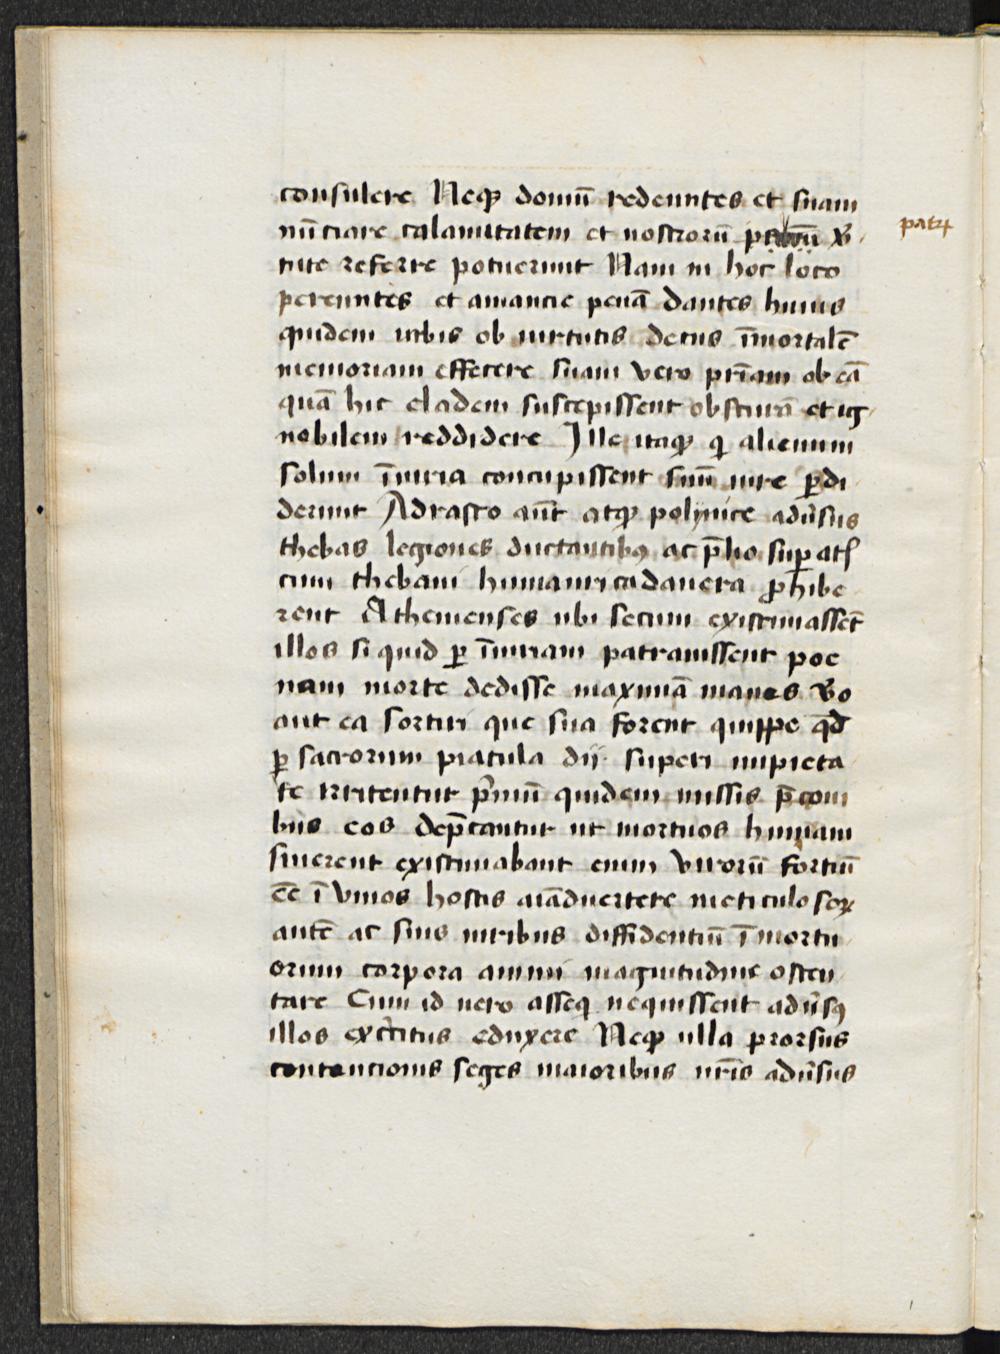 consulere Neqꝫ domū redeuntes et suam
nūciare calamitatem et nostrorū v̄
patꝝ
tute referre potuerunt Nam in hoc loco
pereuntes et amancie penā dantes huius
quidem urbis ob uirtutis decus īmortalē
memoriam effecere suam vero pr̄iam ob eā
quā hic cladem suscepissent obscurā et ig
nobilem reddidere Ille itaqꝫ q̄ alienum
solum īiuria concupissent suū iure ꝑdi
derunt Adrasto aūt atqꝫ polynice adūsus
thebas legiones ductantibꝰ ac p̄lio suꝑatꝭ
cum thebani humanri cadauera ꝓhibe
rent Athenienses ubi secum existimassēt
illos si quid ꝑ īiuriam patrauissent poe
nam morte dedisse maximā manes v̄o
aut ea sortiri que sua forent quippe qd̄
ꝑ sacrorum piacula dij superi impieta
te irritentur p̄mū quidem missis p̄coni
bus eos dep̄cantur ut mortuos humari
sinerent existimabant enim virorū fortiū
ēē ī viuos hostis aīaduertere meticulosoꝝ
autē ac suis uiribus diffidentiū ī mortu
orum corpora animi magnitudine osten
tare Cum id uero asseq̄ nequissent adūsꝰ
illos exc̄itus eduxere Neqꝫ ulla prorsus
contencionis seges maioribus nr̄is adūsus